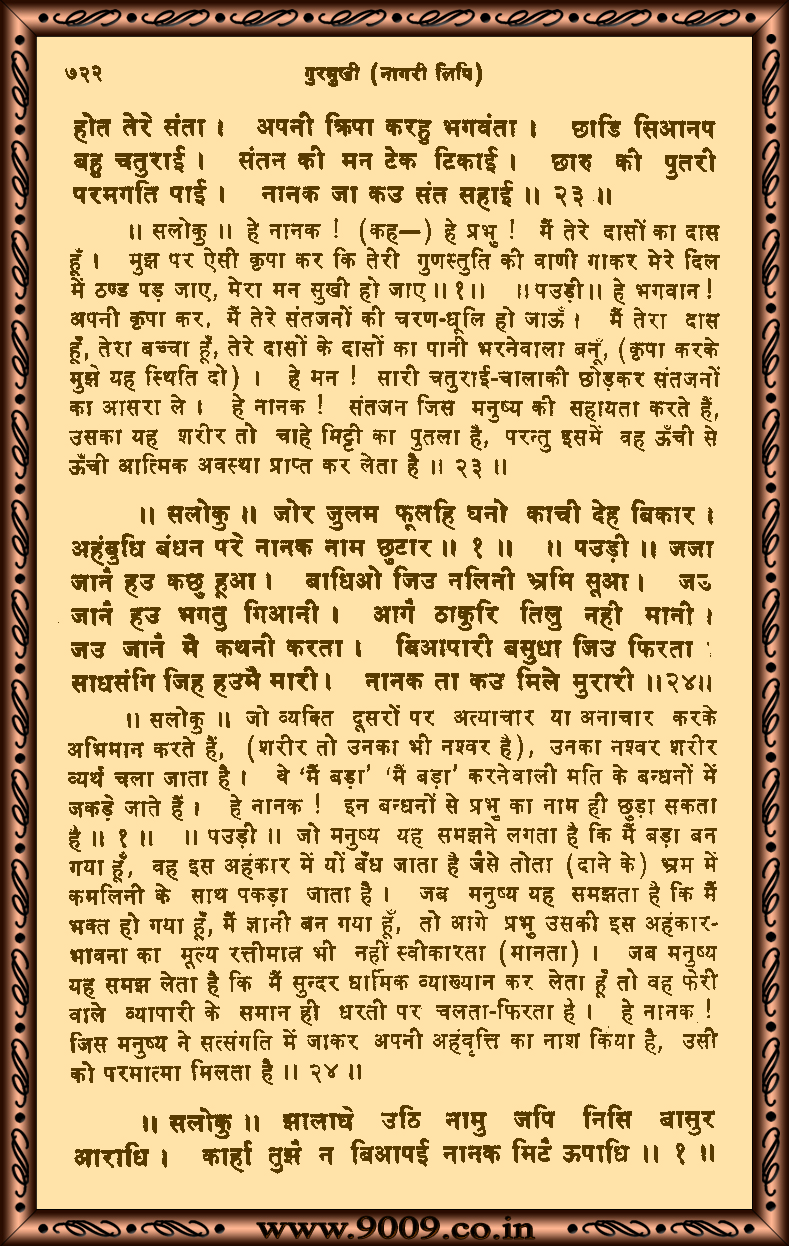 ७२२ गुरमुखी (नागरी लिपि)
होत तेरे संता । अपनी क्रिपा करहु भगवंता । छाडि सिआनप
बहु चतुराई । संतन की मन टेक टिकाई । छारु की पुतरी
परमगति पाई । नानक जा कउ संत सहाई ॥ २३ ॥
॥ सलोकु ॥ हे नानक ! (कह—) हे प्रभु ! मैं तेरे दासों का दास
हूँ । मुझ पर ऐसी कृपा कर कि तेरी गुणस्तुति की वाणी गाकर मेरे दिल
में ठण्ड पड़ जाए, मेरा मन सुखी हो जाए ॥ १ ॥ ॥ पउड़ी ॥ हे भगवान !
अपनी कृपा कर, मैं तेरे संतजनों की चरण-धूलि हो जाऊँ । मैं तेरा दास
हूँ, तेरा बच्चा हूँ, तेरे दासों के दासों का पानी भरनेवाला बनूँ, (कृपा करके
मुझे यह स्थिति दो) । हे मन ! सारी चतुराई-चालाकी छोड़कर संतजनों
का आसरा ले । हे नानक ! संतजन जिस मनुष्य की सहायता करते हैं,
उसका यह शरीर तो चाहे मिट्टी का पुतला है, परन्तु इसमें वह ऊँची से
ऊँची आत्मिक अवस्था प्राप्त कर लेता है ॥ २३ ॥
॥ सलोकु ॥ जोर जुलम फूलहि घनो काची देह बिकार ।
अहंबुधि बंधन परे नानक नाम छुटार ॥ १ ॥ ॥ पउड़ी ॥ जजा
जानै हउ कछु हूआ । बाधिओ जिउ नलिनी भ्रमि सूआ । जउ
जानै हउ भगतु गिआनी । आगै ठाकुरि तिलु नही मानी ।
जउ जानै मै कथनी करता । बिआपारी बसुधा जिउ फिरता ।
साधसंगि जिह हउमै मारी । नानक ता कउ मिले मुरारी ॥ २४ ॥
॥ सलोकु ॥ जो व्यक्ति दूसरों पर अत्याचार या अनाचार करके
अभिमान करते हैं, (शरीर तो उनका भी नश्वर है), उनका नश्वर शरीर
व्यर्थ चला जाता है । वे ‘मैं बड़ा’ ‘मैं बड़ा’ करनेवाली मति के बन्धनों में
जकड़े जाते हैं । हे नानक ! इन बन्धनों से प्रभु का नाम ही छुड़ा सकता
है ॥ १ ॥ ॥ पउड़ी ॥ जो मनुष्य यह समझने लगता है कि मैं बड़ा बन
गया हूँ, वह इस अहंकार में यों बँध जाता है जैसे तोता (दाने के) भ्रम में
कमलिनी के साथ पकड़ा जाता है । जब मनुष्य यह समझता है कि मैं
भक्त हो गया हूँ, मैं ज्ञानी बन गया हूँ, तो आगे प्रभु उसकी इस अहंकार-
भावना का मूल्य रत्तीमात्र भी नहीं स्वीकारता (मानता) । जब मनुष्य
यह समझ लेता है कि मैं सुन्दर धार्मिक व्याख्यान कर लेता हूँ तो वह फेरी
वाले व्यापारी के समान ही धरती पर चलता-फिरता है । हे नानक !
जिस मनुष्य ने सत्संगति में जाकर अपनी अहंवृत्ति का नाश किया है, उसी
को परमात्मा मिलता है ॥ २४ ॥
॥ सलोकु ॥ झालाघे उठि नामु जपि निसि बासुर
आराधि । कार्हा तुझै न बिआपई नानक मिटै ऊपाधि ॥ १ ॥
www.9009.co.in